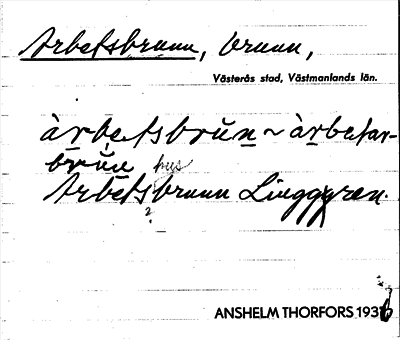 Arbetsbrunn, brunn,
Västerås stad, Västmanlands län.
àrbetsbrŭn ~ àrbetar-
brŭn hus
Arbetsbrunn Linggren.
?
ANSHELM THORFORS 1936